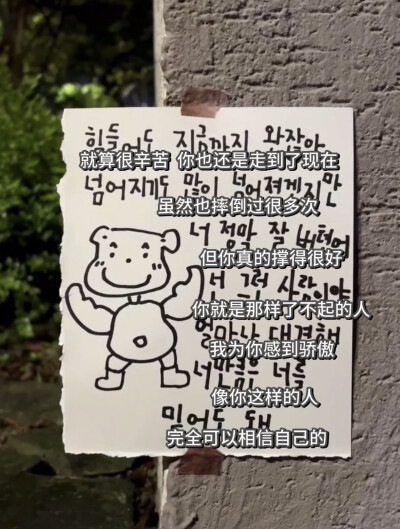 힘들어도 지금까지 왔잖아
就算很辛苦 你也还是走到了现在
넘어지기도 많이 넘어졌겠지만
虽然也摔倒过很多次
너 정말 잘 버텼어
但你真的撑得很好
너 그런 사람이야
你就是那样了不起的人
얼마나 대견해
我为你感到骄傲
너만큼은 너를
像你这样的人
믿어도 돼
完全可以相信自己的